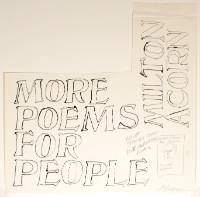 MORE
POEMS
FOR
PEOPLE
MILTON
ACORN